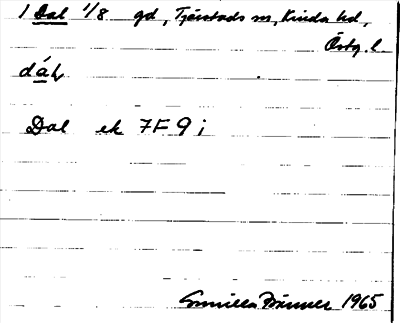 1 Dal 1/8 gd, Tjärstads sn, Kinda hd,
Östg. l.
dáƚ
Dal ek 7F 9i
Gunilla Brunner 1965